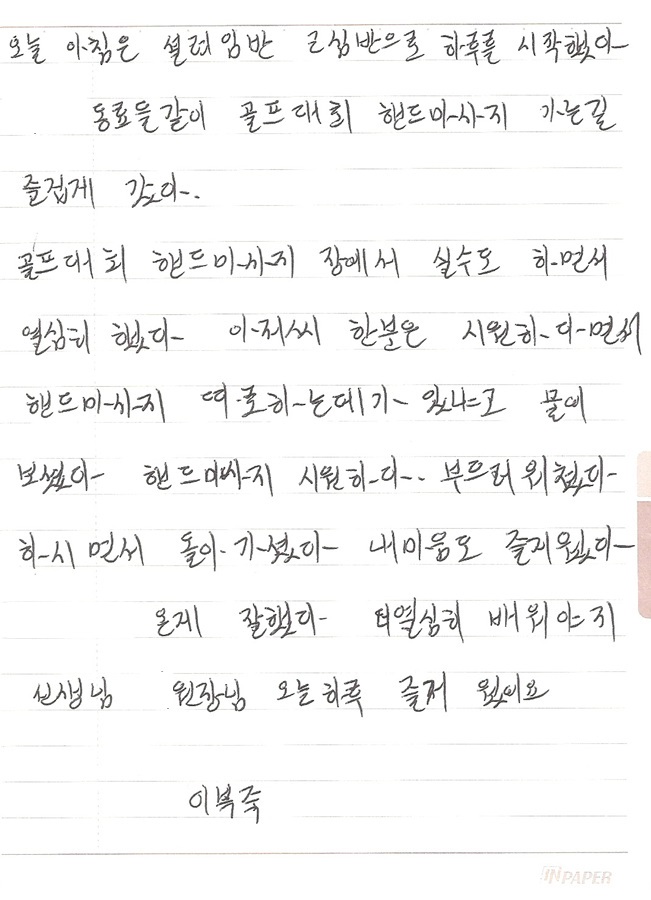 오늘 아침은 설레임반 근심반으로 하루를 시작했다
동료들같이 골프대회 핸드마사지 가는길
즐겁게 갔다.
골프대회 핸드마사지 장에서 실수도 하면서
열심히 했다 아저씨 한분은 시원하다면서
핸드마사지 따로하는데가 있냐고 물어
보셨다 핸드마사지 시원하다.. 부드러워졌다
하시면서 돌아가셨다 내마음도 즐거웠다
온게 잘했다 더열심히 배워야지
선생님 원장님 오늘하루 즐거웠어요
IN PAPER